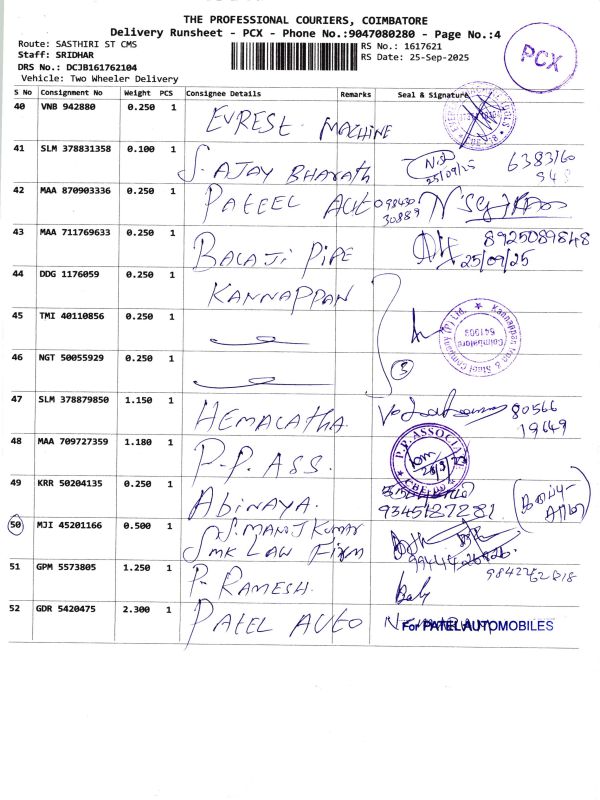 THE PROFESSIONAL COURIERS, COIMBATORE
Delivery Runsheet - PCX - Phone No.:9047080280 - Page No.:4
Route: SASTHIRI ST CMS
Staff: SRIDHAR
DRS No.: DCJB161762104
Vehicle: Two Wheeler Delivery
RS No.: 1617621
RS Date: 25-Sep-2025
PCX
S No Consignment No Weight PCS Consignee Details Remarks Seal & Signature
40 VNB 942880 0.250 1 EVREST MACHINE
41 SLM 378831358 0.100 1 S. AJAY BHARATH 25/09/25 6383160
42 MAA 870903336 0.250 1 PATEEL AUTO 098430 30889
43 MAA 711769633 0.250 1 BALAJI PIPE 8925089848
25/09/25
44 DDG 1176059 0.250 1 KANNAPPAN
45 TMI 40110856 0.250 1
Kannappan Iron & Steel Company (P) Ltd.
Coimbatore
641903
46 NGT 50055929 0.250 1 3
47 SLM 378879850 1.150 1 HEMALATHA 80566
19649
48 MAA 709727359 1.180 1 P.P. ASS. P.P. ASSOCIA
49 KRR 50204135 0.250 1 ABINAYA. 9345187281
50 MJI 45201166 0.500 1 S. MANOJ KUMAR
SMK LAW FIRM
51 GPM 5573805 1.250 1 P. RAMESH.
52 GDR 5420475 2.300 1 PATEL AUTO For PATEL AUTOMOBILES